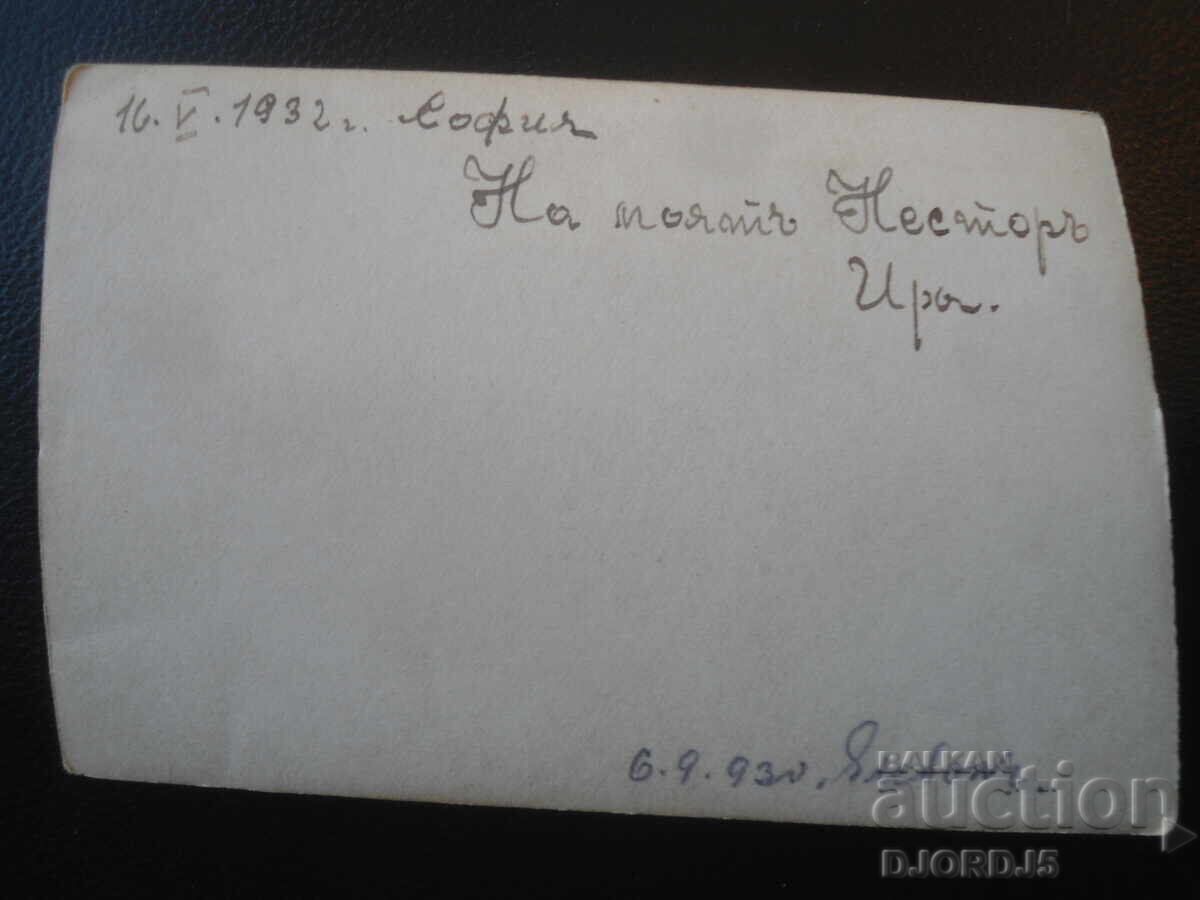 16.V.1932г. София
На моятъ Несторъ
Ира.
6.9.930,
BALKAN
auction
DJORDJ5